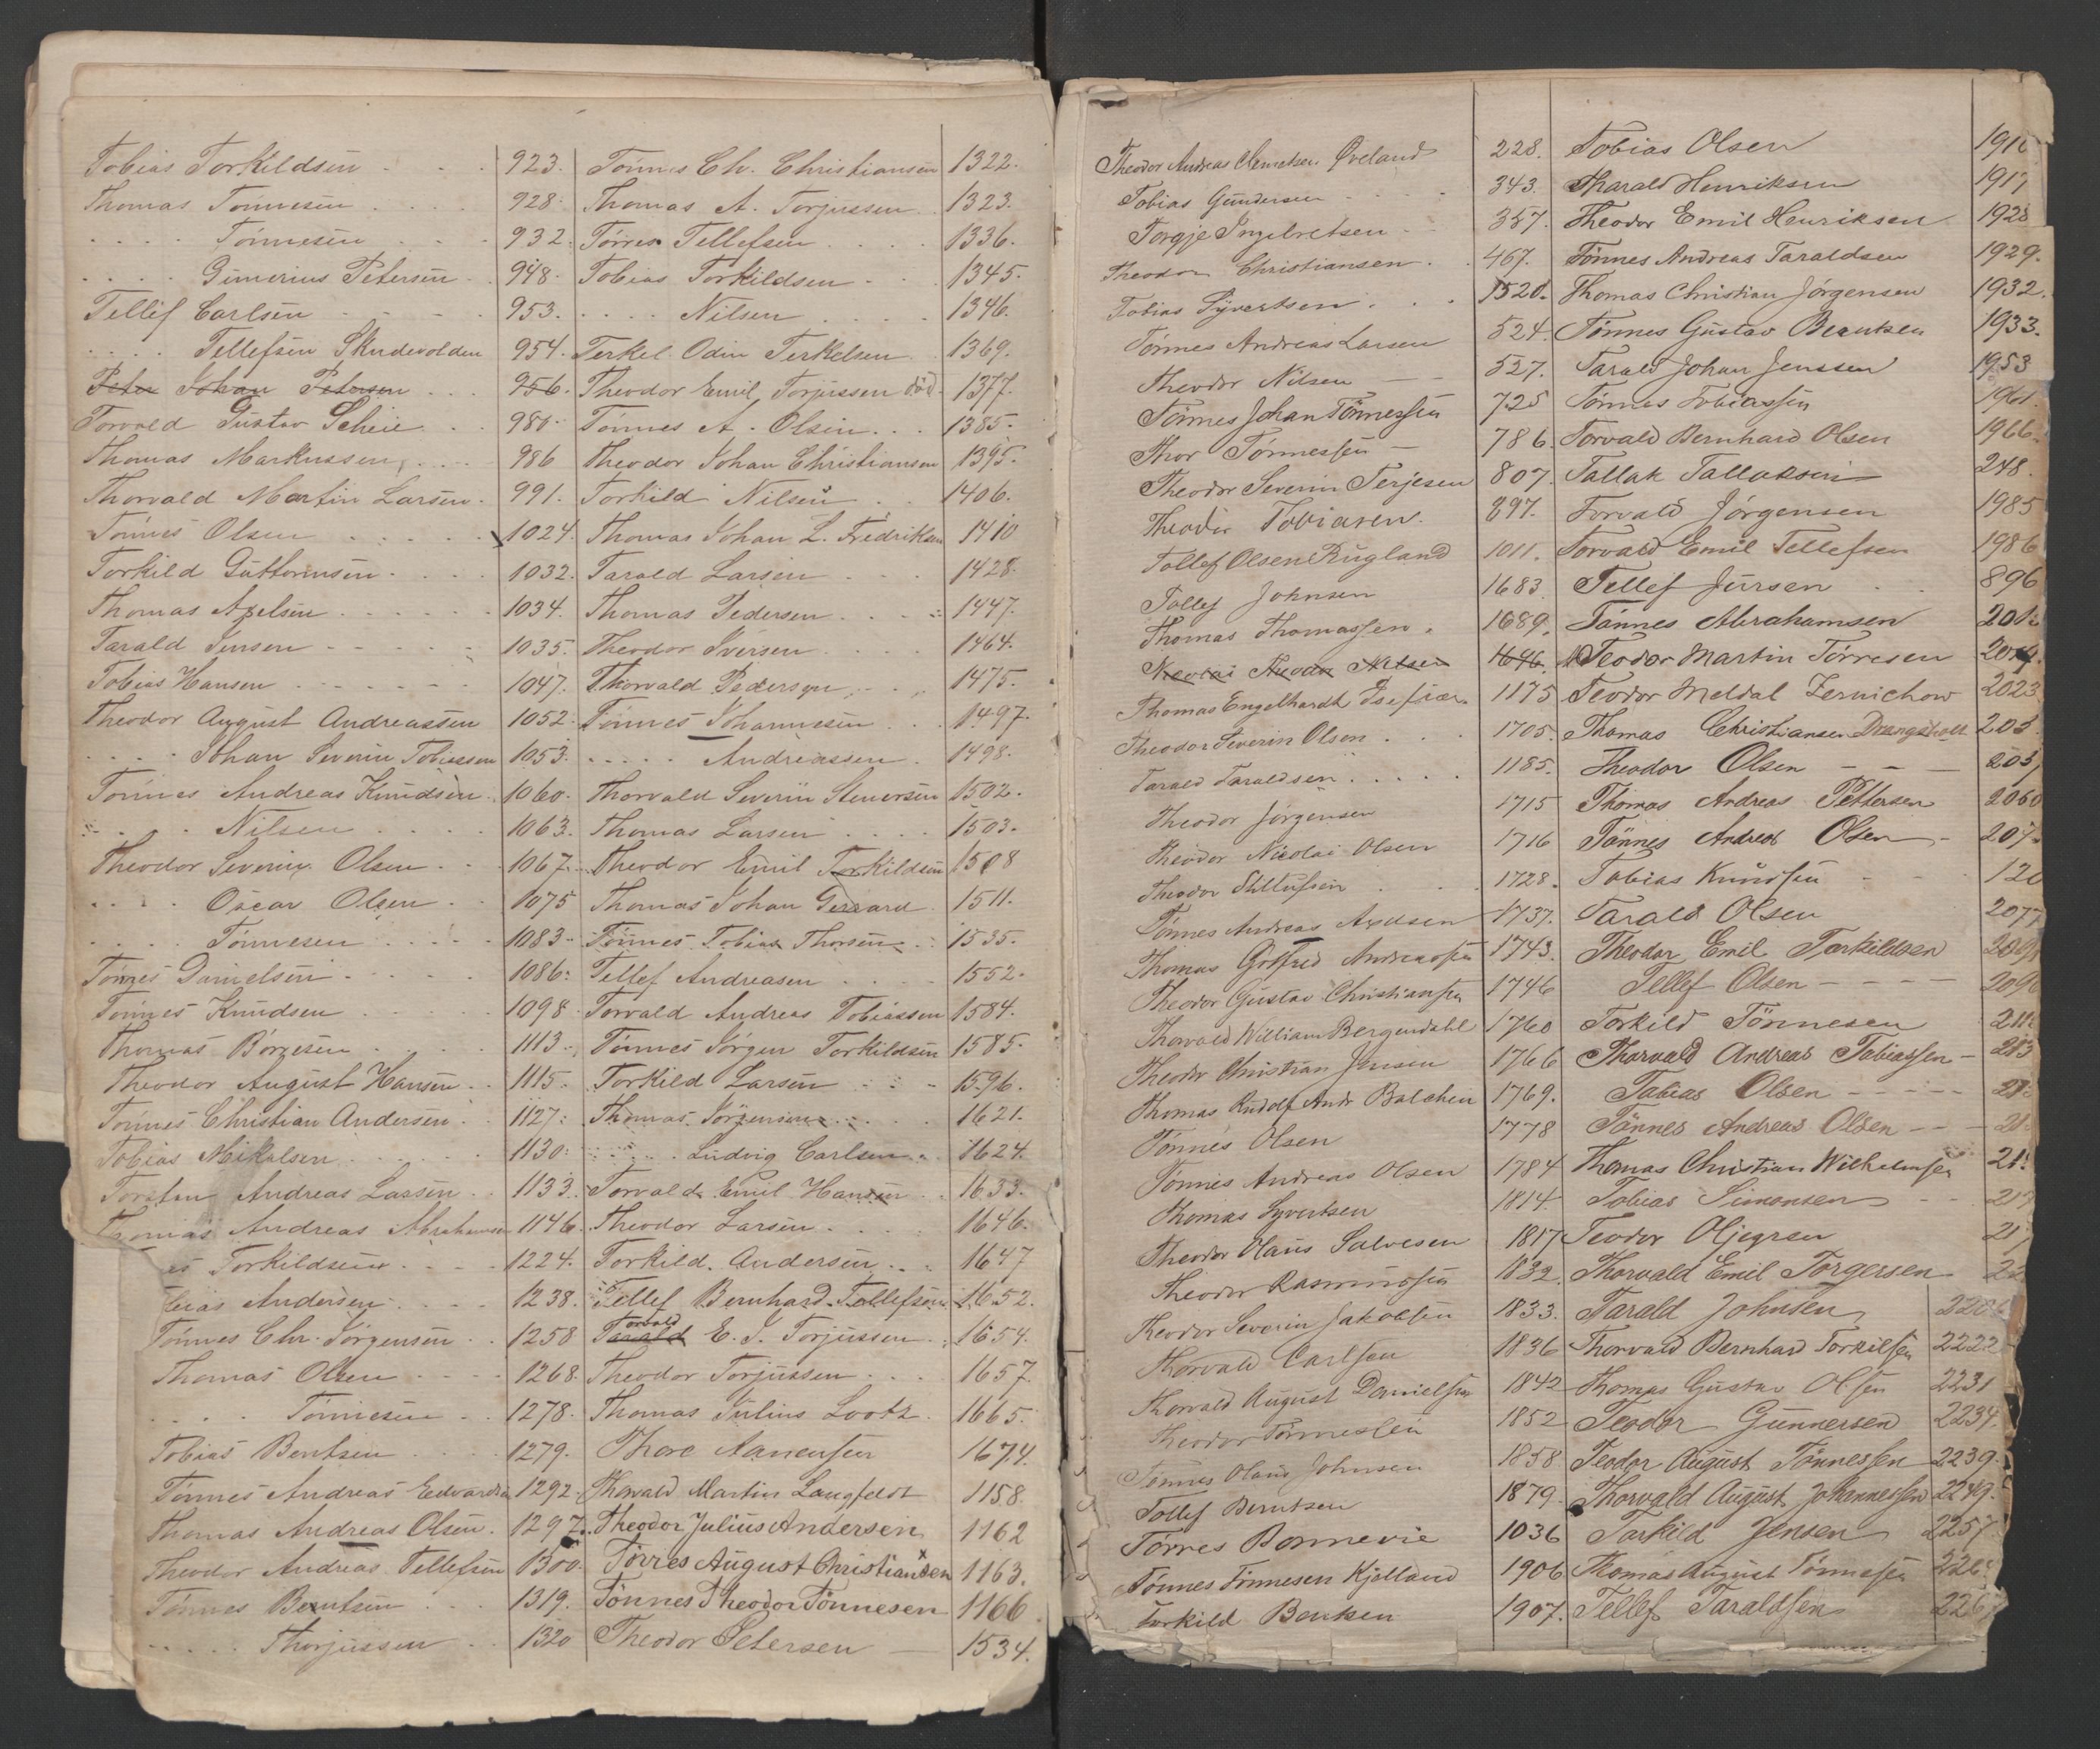 Tobias Torkildsen 923.
Thomas Tönnesen 928.
Tönnesen 932.
Gunerius Petersen 948.
Tellef Carlsen 953.
Tellefsen Skudevolden 954.
Peter Johan Petersen 956.
Torvald Gustav Scheie 980.
Thomas Markussen 986
Thorvald Martin Larsen 991.
Tönnes Olsen 1024.
Torkild Guttormsen 1032.
Thomas Axelsen 1034.
Tarald Jensen 1035.
Tobias Hansen 1047.
Theodor August Andreassen 1052.
Johan Severin Tobiassen 1053.
Tönnes Andreas Knudsen 1060.
Nilsen 1063.
Theodor Severin Olsen 1067.
Oscar Olsen 1075
Tönnesen 1083.
Tönnes Danielsen 1086.
Tönnes Knudsen 1098
Thomas Börresen 1113.
Theodor August Hansen 1115.
Tönnes Christian Andersen 1127.
Tobias Mikalsen 1130.
Torsten Andreas Lassen 1133.
Thomas Andreas Abrahamsen 1146.
Torkildsen 1224.
Andersen 1238.
Tönnes Chr. Jörgensen 1258
Thomas Olsen 1268.
Tönnesen 1278.
Tobias Bentsen 1279.
Tönnes Andreas Edvardsen 1292.
Thomas Andreas Olsen 1297.
Theodor Andreas Tellefsen 1300.
Tönnes Berntsen 1319.
Thorjussen 1320
Tönnes Ch. Christiansen 1322.
Thomas A. Torjussen 1323.
Törres Tellefsen 1336.
Tobias Torkildsen 1345.
Nilsen 1346.
Terkel Odin Terkelsen 1369.
Theodor Emil Torjussen död. 1377.
Tönnes A. Olsen 1385.
Theodor Johan Christiansen 1395.
Torkild Nilsen 1406.
Thomas Johan L. Fredriksen 1410
Tarald Larsen 1428.
Thomas Pedersen 1447.
Theodor Iversen 1464.
Thorvald Pedersen 1475.
Tönnes Johannesen 1497.
Andreassen 1498.
Thorvald Severin Stenersen 1502.
Thomas Larsen 1503.
Theodor Emil Torkildsen 1508
Thomas Johan Gerrard 1511.
Tönnes Tobias Thorsen 1535.
Tellef Andreasen 1552.
Torvald Andreas Tobiassen 1584.
Tönnes Jörgen Torkildsen 1585.
Torkild Larsen 1596.
Thomas Jörgensen 1621.
Ludvig Carlsen 1624.
Torvald Emil Hansen 1633.
Theodor Larsen 1646.
Torkild Andersen 1647
Tellef Bernhard Tollefsen 1652.
Torvald
Tarald E. J. Torjussen 1654.
Theodor Torjussen 1657.
Thomas Julius Lootz 1665.
Thore Aanensen 1674.
Thorvald Martin Langfeldt 1158.
Theodor Julius Andersen 1162
Törres August Christiansen 1163.
Tönnes Theodor Tönnesen 1166
Theodor Petersen 1534.
Theodor Andreas Clemetsen Øveland 228.
Tobias Gundersen 343.
Torgje Ingebretsen 357.
Theodor Christiansen 467.
Tobias Syvertsen 1520.
Tönnes Andreas Larsen 524.
Theodor Nilsen 527.
Tönnes Johan Tönnessen 725
Thor Tönnessen 786.
Theodor Severin Terjesen 807.
Theodor Tobiasen 897.
Tollef Olsen Rugland 1011.
Tollef Johnsen 1683.
Thomas Thomassen 1689.
Nicolai Theodor Nilsen 1696.
Thomas Engelhardt 1175
Theodor Severin Olsen 1705.
Tarald Taraldsen 1185.
Theodor Jörgensen 1715
Theodor Nicolai Olsen 1716
Theodor 1728.
Tönnes Andreas Axelsen 1737.
Thomas Gotfred Andreassen 1743.
Theodor Gustav Christiansen 1746
Thorvald William Bergendahl 1760
Theodor Christian Jensen 1766
Thomas Rudolf Andr Balchen 1769.
Tönnes Olsen 1778
Tönnes Andreas Olsen 1784
Thomas Syvertsen 1814.
Theodor Olaus Salvesen 1817
Theodor Rasmussen 1832.
Theodor Severin Jakobsen 1833.
Thorvald Carlsen 1836
Thorvald August Danielsen 1842
Theodor Tönnessen 1852
Tönnes Olaus Johnsen 1858
Tollef Berntsen 1879.
Törres Bonnevie 1036
Tönnes Tönnesen Kjelland 1906
Torkild Bentsen 1907.
Tobias Olsen
Tharald Henriksen 1917
Theodor Emil Henriksen 1928
Tönnes Andreas Taraldsen 1929.
Thomas Christian Jörgensen 1932.
Tönnes Gustav Berntsen 1933.
Tarald Johan Jenssen 1953
Tönnes Tobiassen 1961
Torvald Bernhard Olsen 1966.
Tallak Tallaksen 248.
Torvald Jörgensen 1985
Torvald Emil Tellefsen 1986
Tellef Jursen 896
Tönnes Abrahamsen
Teodor Martin Törresen
Teodor Meldal Zernichow 2023
Thomas Christiansen Drangsholt 203
Theodor Olsen
Thomas Andreas Pettersen 2060
Tönnes Andreas Olsen
Tobias Knudsen
Tarald Olsen 2077
Theodor Emil Torkildsen
Tellef Olsen
Torkild Tönnesen
Thorvald Andreas Tobiassen
Tobias Olsen
Tönnes Andreas Olsen
Thomas Christian Wilhelmsen
Tobias Simonsen
Teodor Oljegrsen
Thorvald Emil Torgersen
Tarald Johnsen
Thorvald Bernhard Torkilsen 2222
Thomas Gustav Olsen 2231
Teodor Gunnersen 2234.
Teodor August Tönnessen 2239.
Thorvald August Johannessen 2249.
Torkild Jensen 2257
Thomas August Tönnesen
Tellef Taraldsen